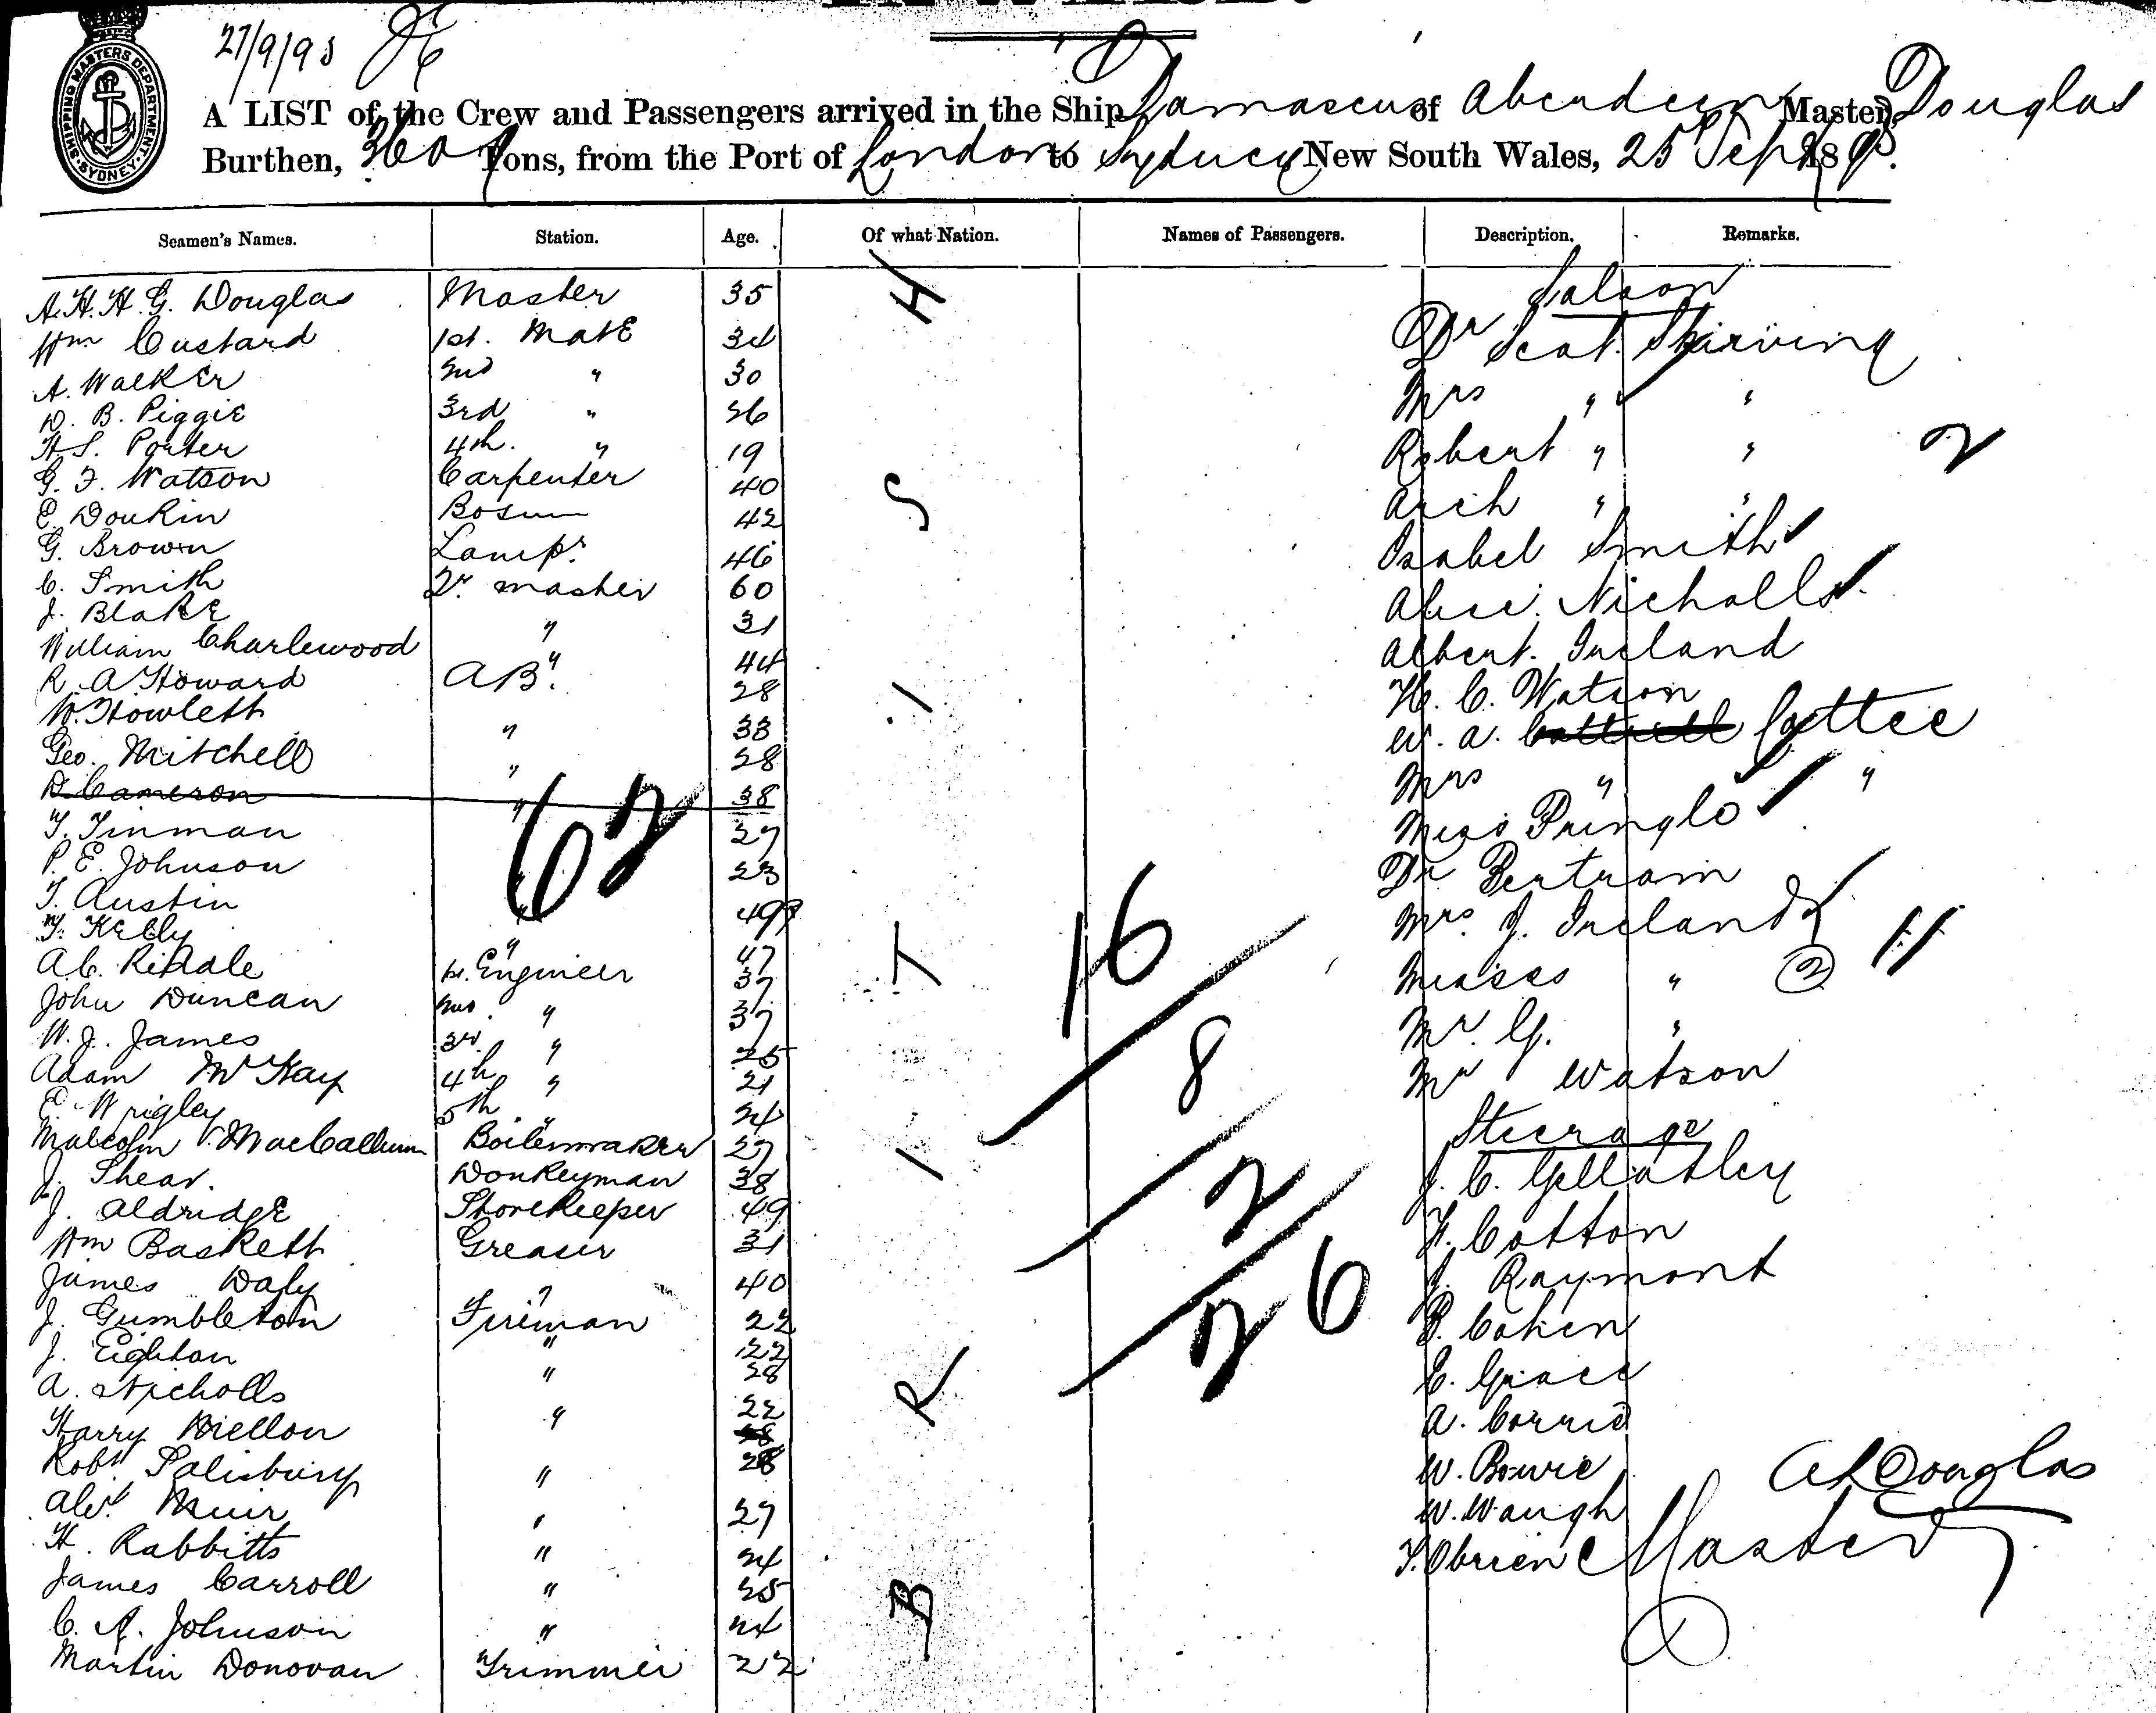 SHIPPING MASTERS DEPARTMENT
SYDNEY
27/9/95
A LIST of the Crew and Passengers arrived in the Ship Damascus of Aberdeen Master, Douglas
Burthen, 3609 Tons, from the Port of London to Sydney New South Wales, 25 Sept 189
Seamen's Names. Station. Age. Of what Nation. Names of Passengers. Description. Remarks.
A. H. H. G. Douglas Master 35
Wm Custard 1st. Mate 34
A. Walker 2nd " 30
D. B. Piggie 3rd " 26
H S. Porter 4th. " 19
G. F. Watson Carpenter 40
E. Donkin Bosun 42
G. Brown Lampr. 46
C. Smith Qr. master 60
J. Blake " 31
William Charlewood " 44
R. A Howard AB. 28
W. Howlett " 33
Geo. Mitchell " 28
D Cameron " 38
T. Tinman 27
P. E. Johnson " 23
T. Austin " 49
T. Kelly " 47
A C. Riddle 1st. Engineer 37
John Duncan 2nd. " 37
W. J. James 3rd. " 25
Adam McKay 4th " 21
E. Wrigley 5th. " 24
Malcolm V. MacCallum Boilermaker 27
J. Shear. Donkeyman 38
J. Aldridge Storekeeper 49
Wm Baskett Greaser 31
James Daly " 40
J. Gumbleton Fireman 22
J. Eighton " 22
A. Nicholls " 28
Harry Mellon " 22
Robt Salisbury " 28
Alex. Muir " 27
H. Rabbitts " 24
James Carroll " 25
C. A. Johnson " 24
Martin Donovan Trimmer 22
62
BRITISH
16
8
2
26
Saloon
Dr Scot Skirving
Mrs " "
Robert " "
Arch " "
2
Isabel Smith
Alice Nicholls
Albert. Ireland
H. C. Watson
W. A. Cottrell Cottee
Mrs " "
Miss Pringle
Dr Bertram
Mrs. J. Ireland
Misses " 2
11
Mr. G. "
Mr Watson
Steerage
J. C. Gellatley
F. Cotton
J. Raymont
B. Cohen
E. Grace
A. Corrie
W. Bowie
W. Waugh
T. Obrien
A H Douglas
Master